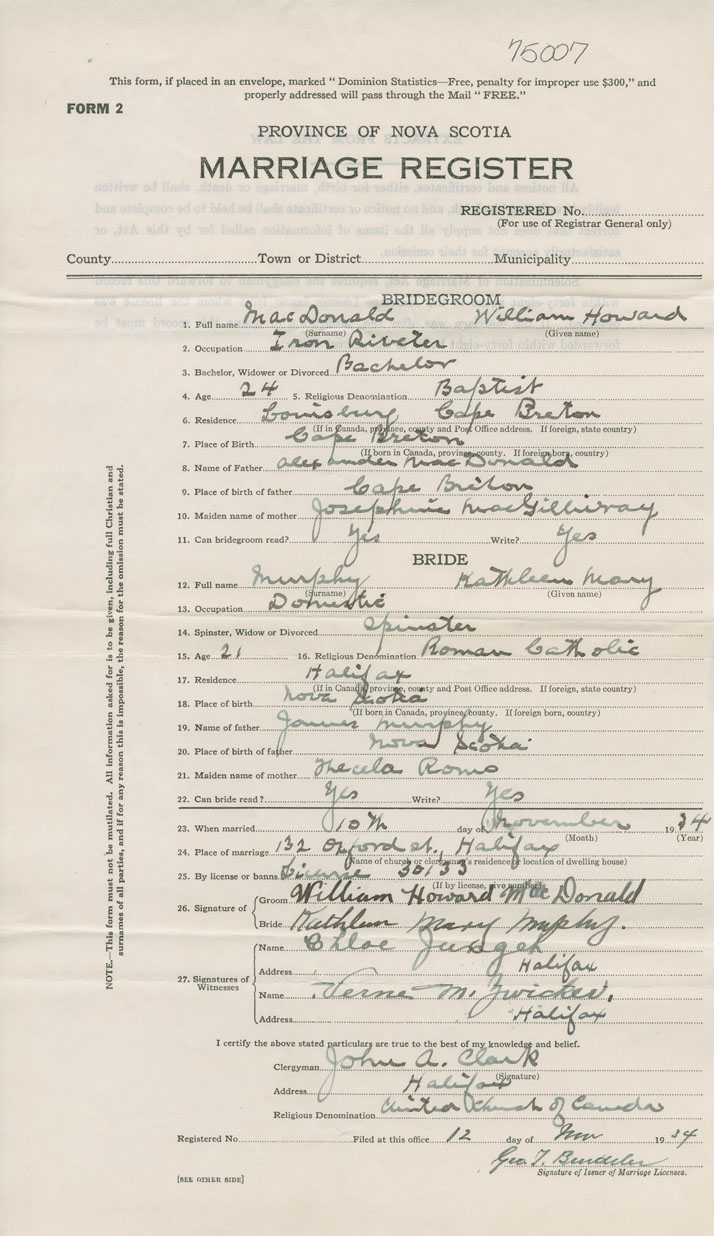 75007
This form, if placed in an envelope, marked " Dominion Statistics—Free, penalty for improper use $300," and
properly addressed will pass through the Mail " FREE."
FORM 2
PROVINCE OF NOVA SCOTIA
MARRIAGE REGISTER
REGISTERED No.
(For use of Registrar General only)
County Town or District Municipality
BRIDEGROOM
1. Full name MacDonald William Howard
(Surname) (Given name)
2. Occupation Iron Riveter
3. Bachelor, Widower or Divorced Bachelor
4. Age 24 5. Religious Denomination Baptist
6. Residence Louisburg Cape Breton
(If in Canada, province, county and Post Office address. If foreign, state country)
7. Place of Birth Cape Breton
(If born in Canada, province, county. If foreign born, country)
8. Name of Father Alexander MacDonald
9. Place of birth of father Cape Breton
10. Maiden name of mother Josephine MacGillivray
11. Can bridegroom read? Yes Write? Yes
BRIDE
12. Full name Murphy Kathleen Mary
(Surname) (Given name)
13. Occupation Domestic
14. Spinster, Widow or Divorced Spinster
15. Age 21 16. Religious Denomination Roman Catholic
17. Residence Halifax
(If in Canada, province, county and Post Office address. If foreign, state country)
18. Place of birth Nova Scotia
(If born in Canada, province, county. If foreign born, country)
19. Name of father James Murphy
20. Place of birth of father Nova Scotia
21. Maiden name of mother Thecela
22. Can bride read? Yes Write? Yes
23. When married 10th day of November 1934
(Month) (Year)
24. Place of marriage 132 Oxford St., Halifax
(Name of church or clergyman's residence or location of dwelling house)
25. By license or banns License 30133
(If by license, give number)
26. Signature of
Groom William Howard MacDonald
Bride Kathleen Mary Murphy.
27. Signatures of
Witnesses
Name Chloe
Address Halifax
Name Verne M. Zwicker,
Address Halifax
I certify the above stated particulars are true to the best of my knowledge and belief.
Clergyman John A. Clark
(Signature)
Address Halifax
Religious Denomination United Church of Canada
Registered No Filed at this office 12 day of Nov 1934
Geo. T.
Signature of Issuer of Marriage Licenses.
[SEE OTHER SIDE]
NOTE.—This form must not be mutilated. All information asked for is to be given, including full Christian and
surnames of all parties, and if for any reason this is impossible, the reason for the omission must be stated.